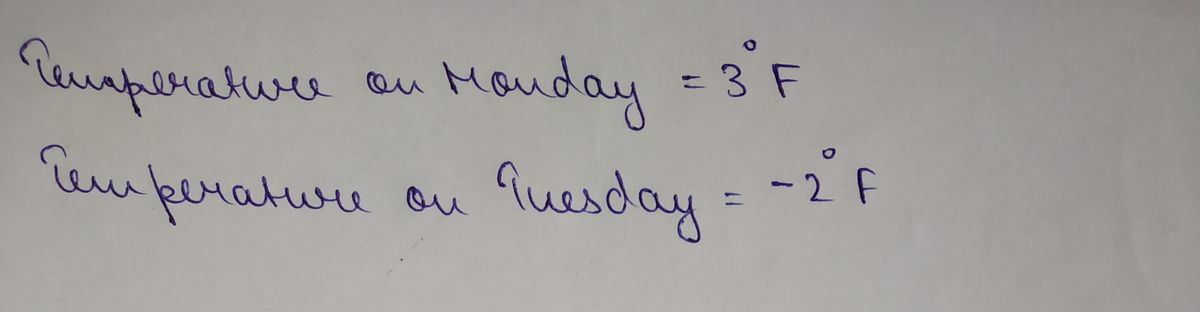 Temperature on Monday = 3°F
Temperature on Tuesday = -2°F